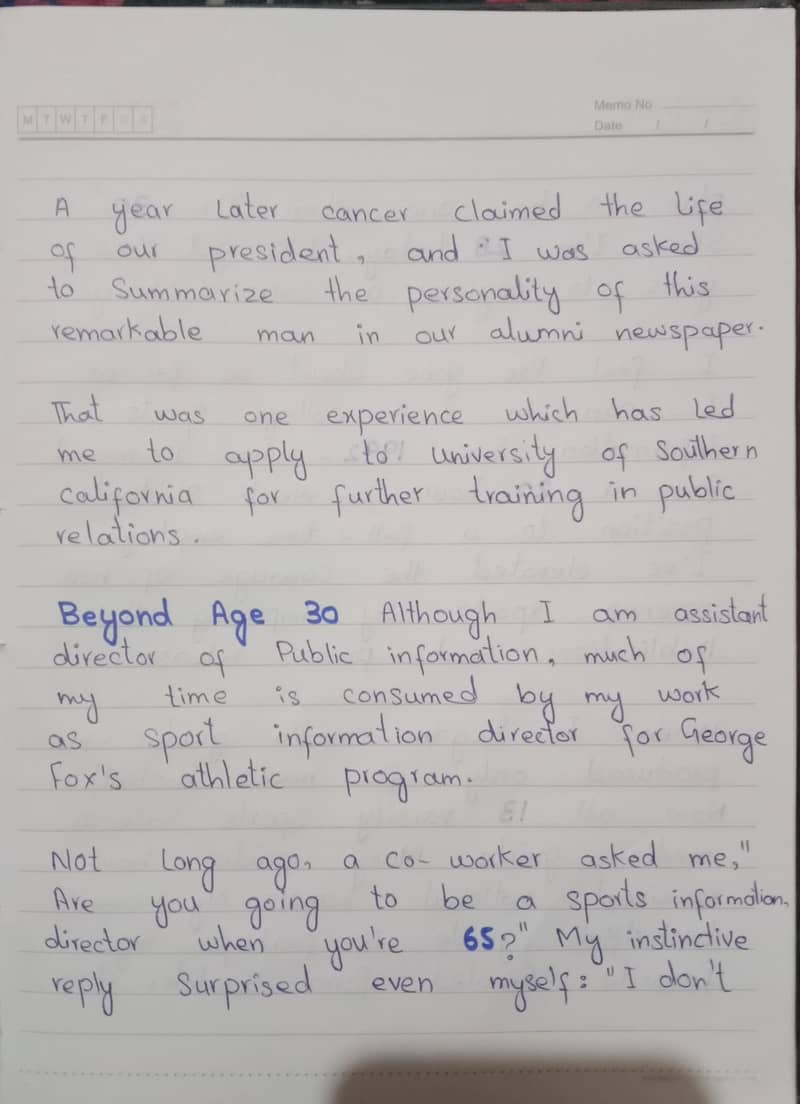 M T W T F S S
Memo No
Date / /
A year Later cancer claimed the life
of our president, and I was asked
to Summarize the personality of this
remarkable man in our alumni newspaper.
That was one experience which has Led
me to apply to University of Southern
California for further training in public
relations.
Beyond Age 30 Although I am assistant
director of Public information, much of
my time is consumed by my work
as sport information director for George
Fox's athletic program.
Not Long ago, a co- worker asked me,"
Are you going to be a sports information,
director when you're 65?" My instinctive
reply Surprised even myself: "I don't